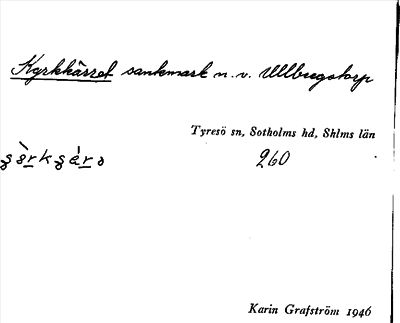 Kyrkkärret sankmark n. v. Ullbergstorp
Tyresö sn, Sotholms hd, Shlms län
260
Karin Grafström 1946